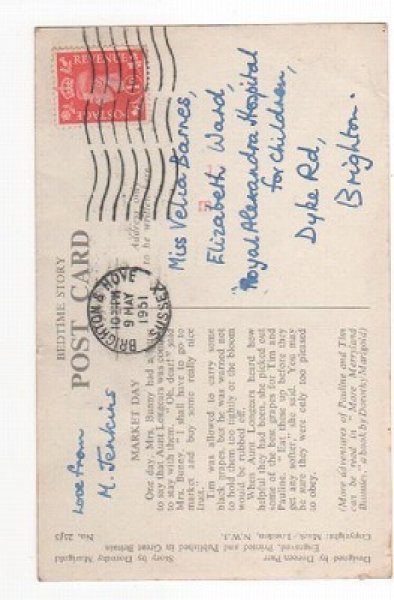 BEDTIME STORY
POST CARD
Address only
to be written here
REVENUE
POSTAGE
BRIGHTON & HOVE
9 MAY
1951
SUSSEX
Miss Velia Barnes,
Elizabeth Ward,
"Royal Alexandra Hospital
for Children,
Dyke Rd,
Brighton.
Love from
M. Jenkins
MARKET DAY
One day, Mrs. Bunny had
to say that Aunt Longears was
to stay with them. "Oh, dear," said
Mrs. Bunny, "I shall have to go to
market and buy some really nice
fruit."
Tim was allowed to carry some
black grapes, but he was warned not
to hold them too tightly or the bloom
would be rubbed off.
When Aunt Longears heard how
helpful they had been, she picked out
some of the best grapes for Tim and
Pauline. "Eat these up before they
get any softer," she said. You may
be sure they were only too pleased
to obey.
(More adventures of Pauline and Tim
can be read in "More Merryland
Bunnies," a book by Dorothy Marigold)
Designed by Doreen Parr
Story by Dorothy Marigold
Engraved, Printed and Published in Great Britain
Copyright: Mack, London, N.W.1.